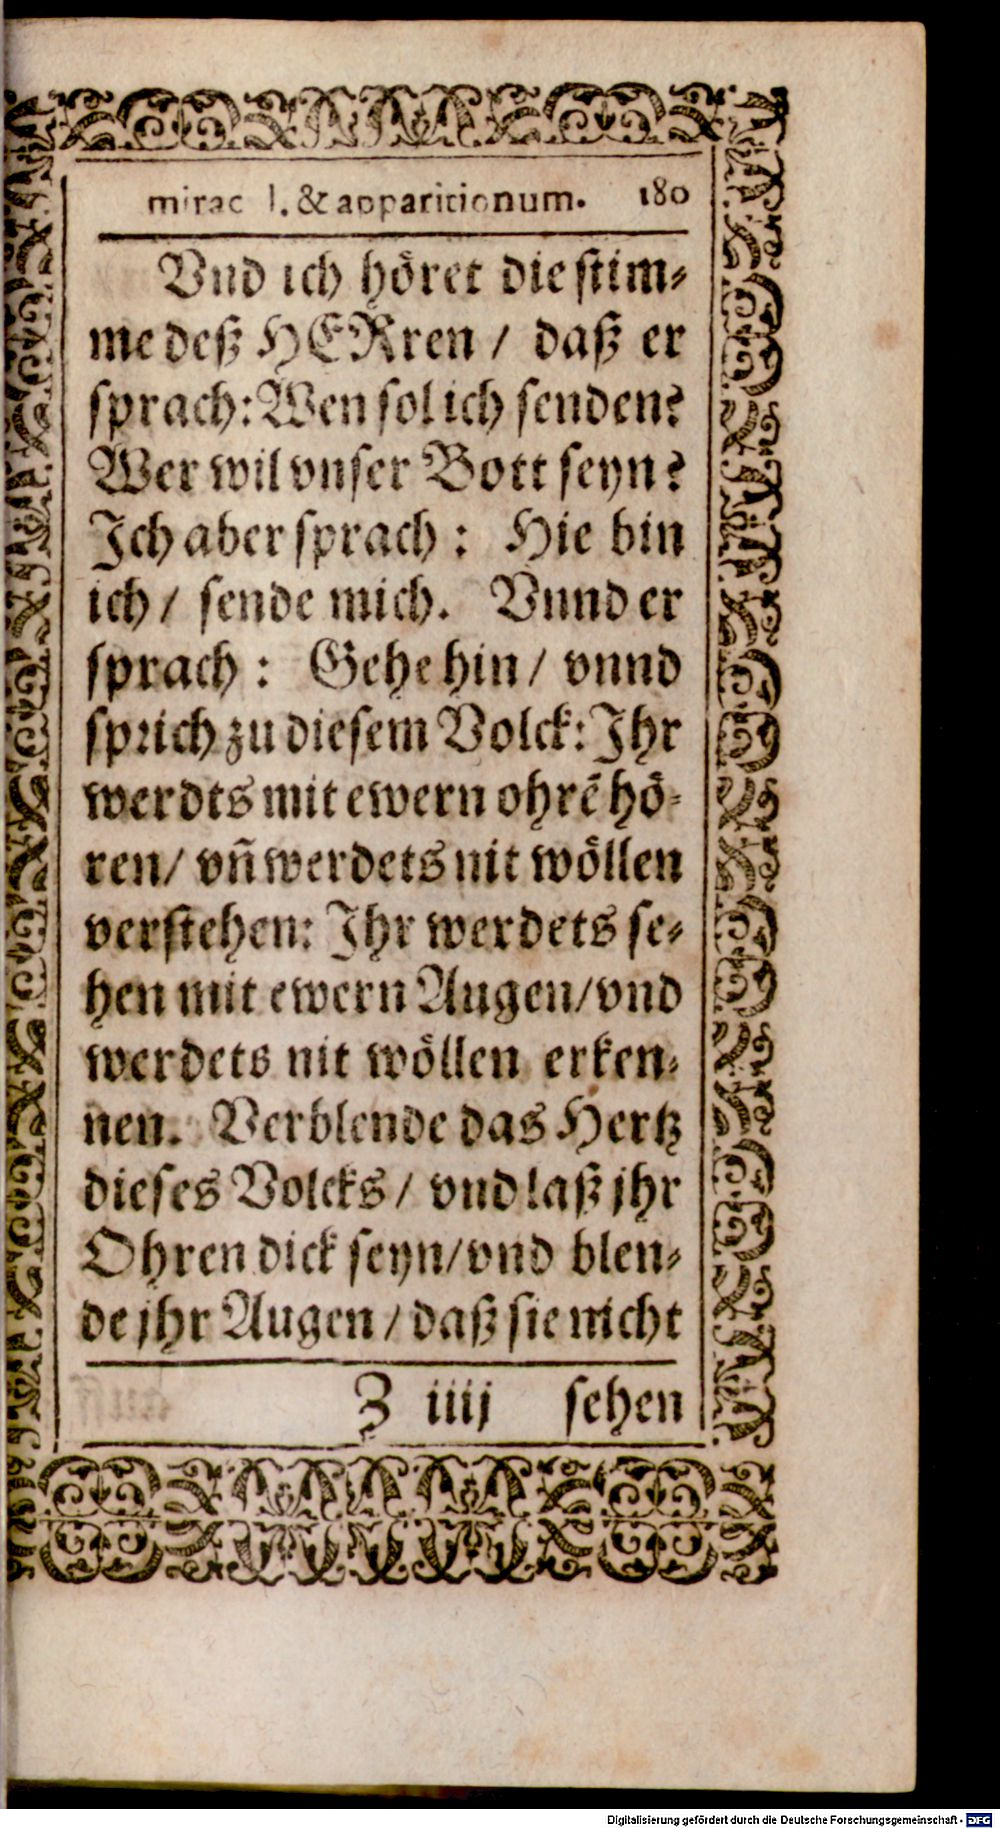 mirac l. & apparitionum. 180
Vnd ich höret die stim⸗
me deß HERren / daß er
sprach: Wen sol ich senden?
Wer wil vnser Bott seyn?
Ich aber sprach : Hie bin
ich / sende mich. Vnnd er
sprach : Gehe hin / vnnd
sprich zu diesem Volck: Ihr
werdts mit ewern ohrē hö⸗
ren / vñ werdets nit wöllen
verstehen: Ihr werdets se⸗
hen mit ewern Augen / vnd
werdets nit wöllen erken⸗
nen. Verblende das Hertz
dieses Volcks / vnd laß jhr
Ohren dick seyn / vnd blen⸗
de jhr Augen / daß sie nicht
Z iiij sehen
Digitalisierung gefördert durch die Deutsche Forschungsgemeinschaft - DFG